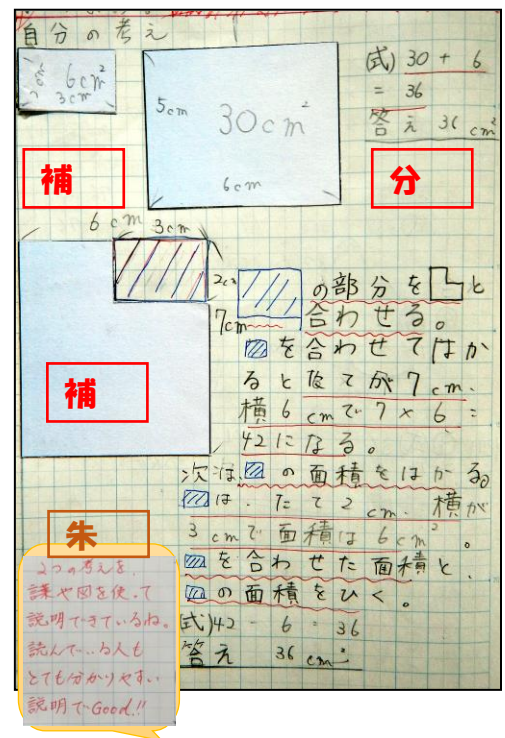 自分の考え
2cm 6cm²
3cm
5cm 30cm²
6cm
(式) 30 + 6
= 36
答え 36 cm²
補
分
6cm 3cm
2cm
7cm
補
の部分をと
合わせる。
を合わせてはか
るとたてが7cm、
横6cmで7×6=
42になる。
次は、の面積をはかる。
は、たて2cm、横が
3cmで面積は6cm²。
を合わせた面積と、
の面積をひく。
(式)42-6=36
答え 36cm²
朱
2つの考えを、
言葉や図を使って
説明できているね。
読んでいる人も
とても分かりやすい
説明でGood!!